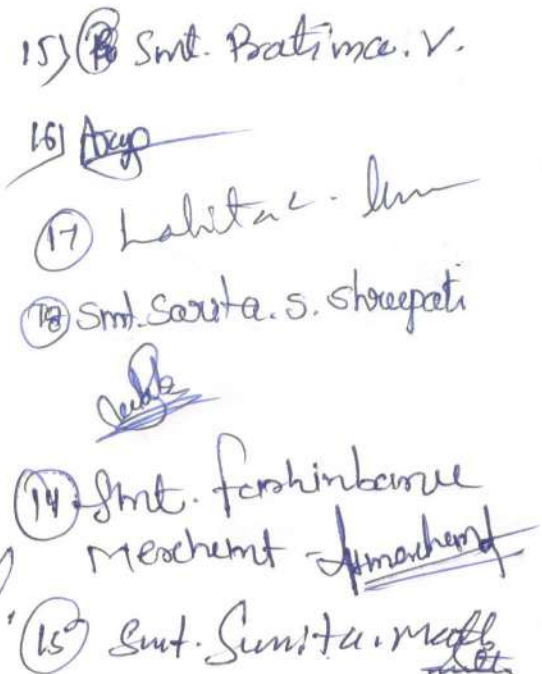 15) Smt. Pratima. V.
16)
17 Lalita c.
18 Smt. Sarita. S. Shreepati
14 Smt. farshinbanu
Merchemt - Fmerchemt
15 Smt. Sunita. Math